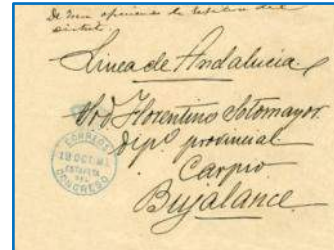 De
del
distrito.
Linea de Andalucia.
Florentino Sotomayor.
dipº provincial
Carpio
Bujalance
CORREOS
18 OCT
ESTAFETA
DEL
CONGRESO